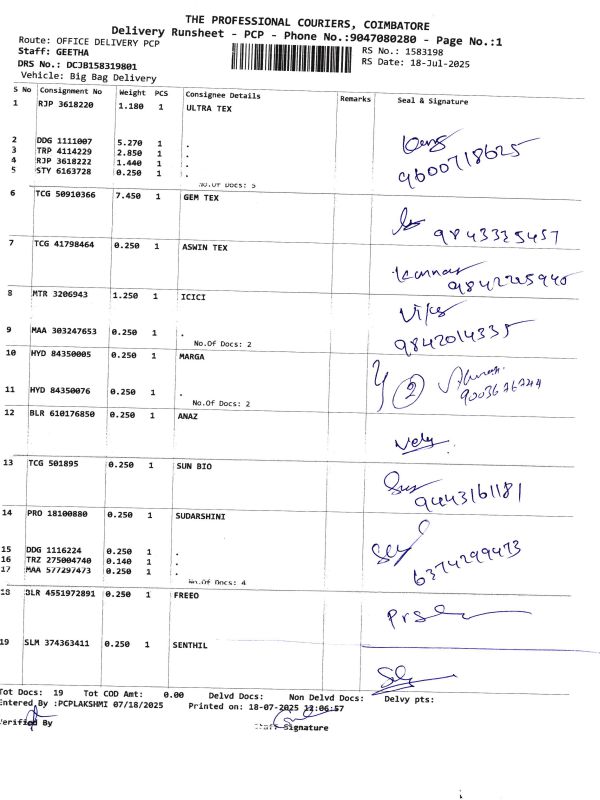 THE PROFESSIONAL COURIERS, COIMBATORE
Delivery Runsheet - PCP - Phone No.:9047080280 - Page No.:1
Route: OFFICE DELIVERY PCP
RS No.: 1583198
Staff: GEETHA
RS Date: 18-Jul-2025
DRS No.: DCJB158319801
Vehicle: Big Bag Delivery
S No Consignment No Weight PCS Consignee Details Remarks Seal & Signature
1 RJP 3618220 1.180 1 ULTRA TEX
2 DDG 1111007 5.270 1 .
3 TRP 4114229 2.850 1 .
4 RJP 3618222 1.440 1 .
5 STY 6163728 0.250 1 .
9600718625
No.Of Docs: 5
6 TCG 50910366 7.450 1 GEM TEX
9843325457
7 TCG 41798464 0.250 1 ASWIN TEX
Kannan
8 MTR 3206943 1.250 1 ICICI
9 MAA 303247653 0.250 1 .
9842014335
No.Of Docs: 2
10 HYD 84350005 0.250 1 MARGA
2
11 HYD 84350076 0.250 1 .
No.Of Docs: 2
12 BLR 610176850 0.250 1 ANAZ
13 TCG 501895 0.250 1 SUN BIO
9443161181
14 PRO 18100880 0.250 1 SUDARSHINI
15 DDG 1116224 0.250 1 .
16 TRZ 275004740 0.140 1 .
17 MAA 577297473 0.250 1 .
6374299473
No.Of Docs: 4
18 BLR 4551972891 0.250 1 FREEO
19 SLM 374363411 0.250 1 SENTHIL
Tot Docs: 19 Tot COD Amt: 0.00 Delvd Docs: Non Delvd Docs: Delvy pts:
Entered By :PCPLAKSHMI 07/18/2025 Printed on: 18-07-2025 12:06:57
Verified By Staff Signature